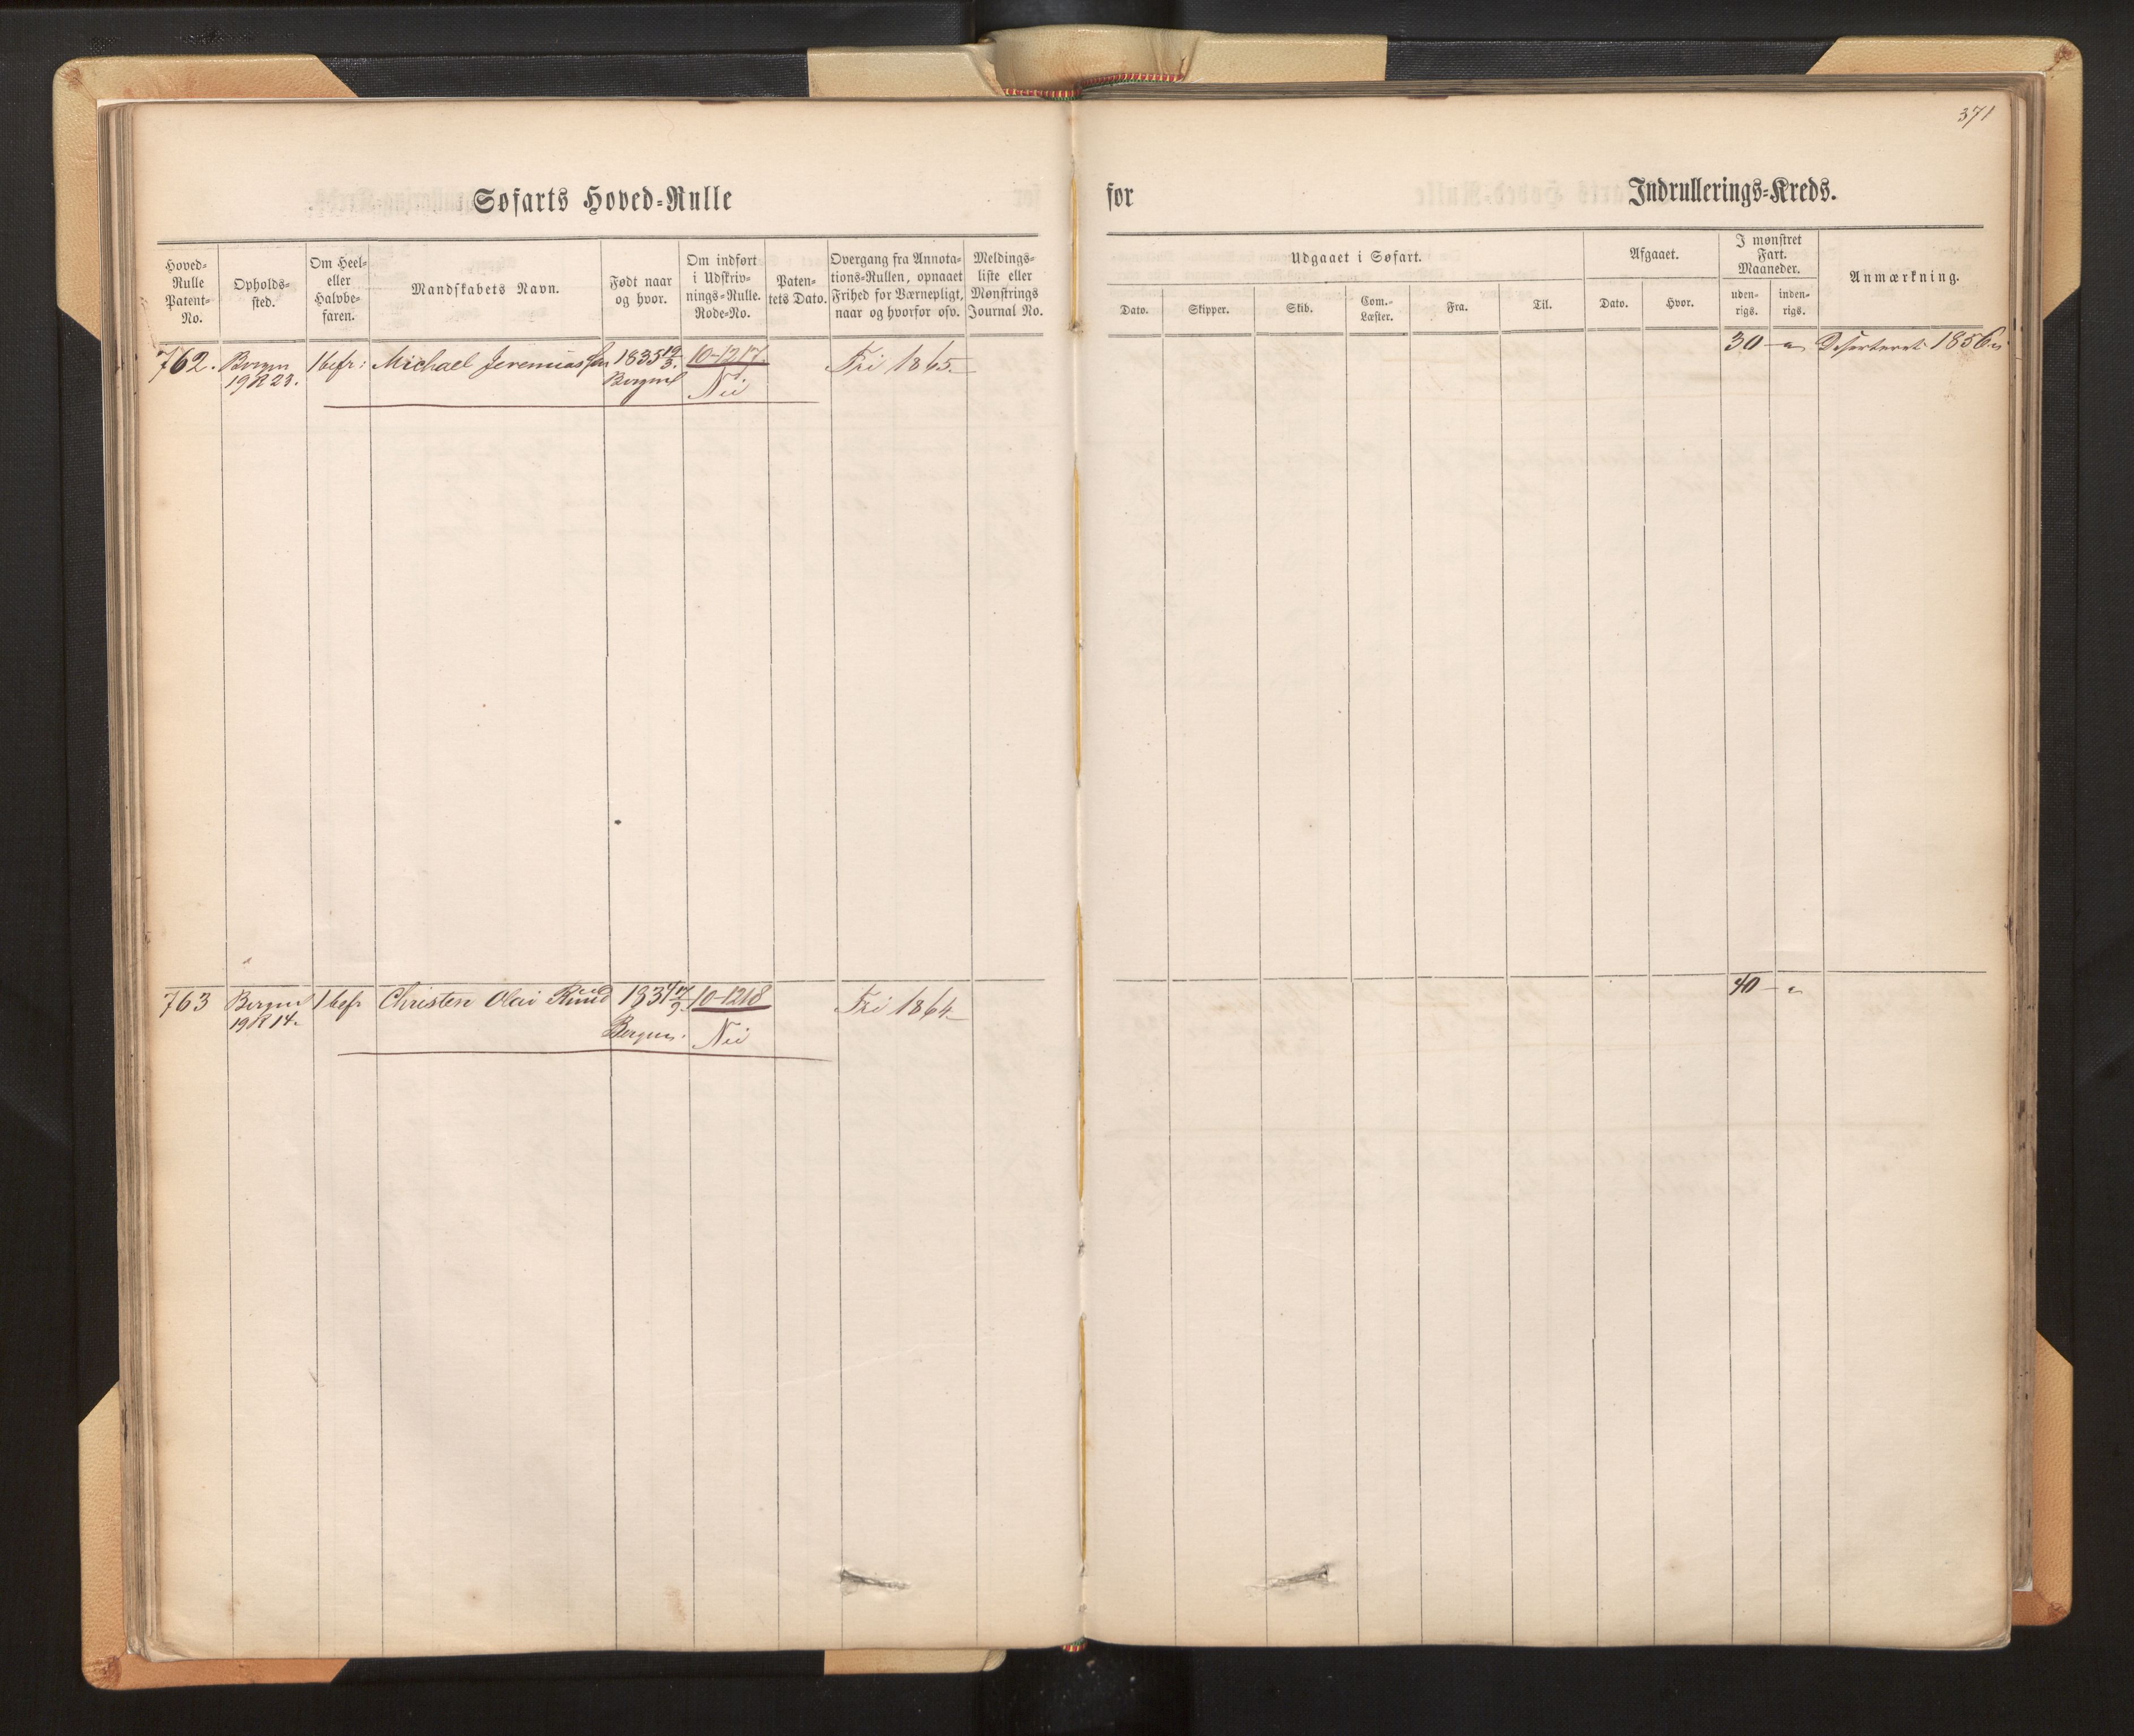 371
Søfarts Hoved-Rulle
for
Indrullerings-Kreds.
Hoved-
Rulle
Patent-
No.
Opholds-
sted.
Om Heel-
eller
Halvbe-
faren.
Mandskabets Navn.
Født naar
og hvor.
Om indført
i Udskriv-
nings-Rulle.
Rode-No.
Paten-
tets Dato.
Overgang fra Annota-
tions-Rullen, opnaaet
Frihed for Værnepligt,
naar og hvorfor osv.
Meldings-
liste eller
Mønstrings
Journal No.
Udgaaet i Søfart.
Dato.
Skipper.
Skib.
Com.-
Læster.
Fra.
Til.
Afgaaet.
Dato.
Hvor.
I mønstret
Fart.
Maaneder.
uden-
rigs.
inden-
rigs.
Anmærkning.
762. Bergen 1 befr: Michael Jeremiassen 1835 12/3. 10-1217. Fri 1865.
19 R 23. Bergen Nei
30 - " Deserteret 1856
763 Bergen 1 befr Christen Olai Ruud 1834 17/9. 10-1218 Fri 1864
19 R 14. Bergen. Nei
40 - "